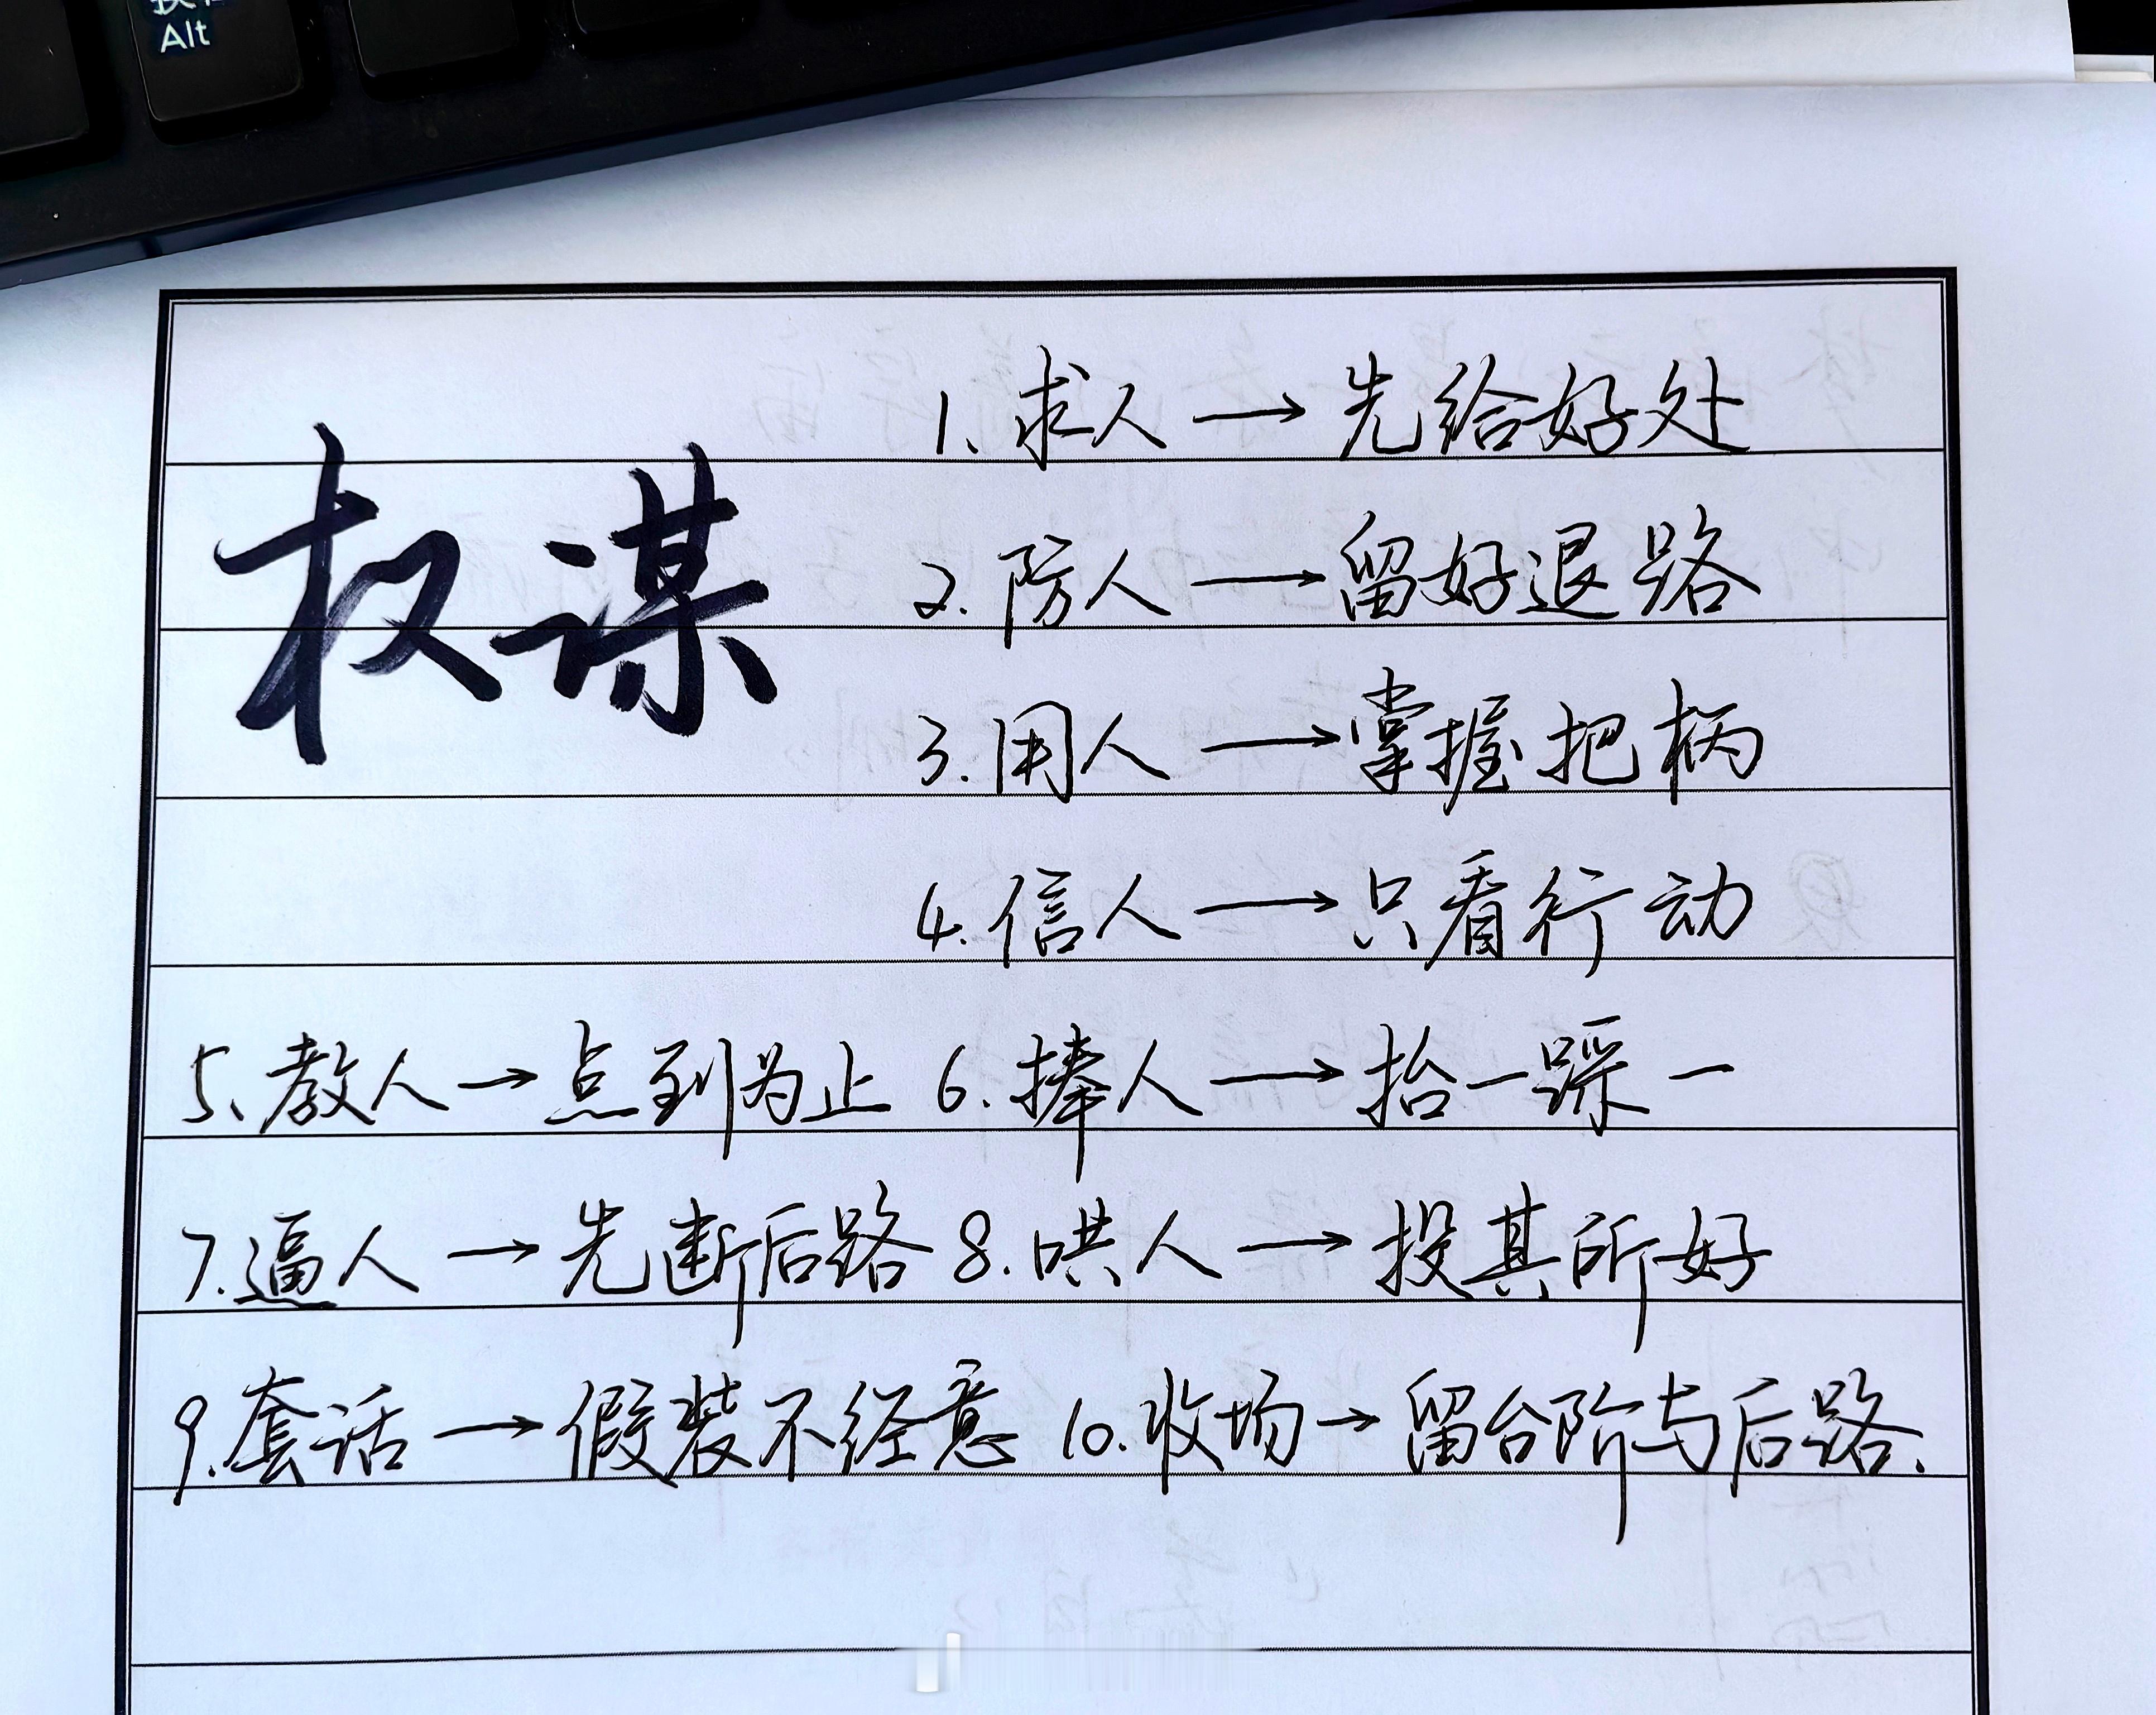 Alt
权谋
1、求人→先给好处
2.防人→留好退路
3.用人→掌握把柄
4.信人→只看行动
5、教人→点到为止 6.捧人→抬一踩一
7.逼人→先断后路 8.哄人→投其所好
9.套话→假装不经意 10.收场→留台阶与后路.